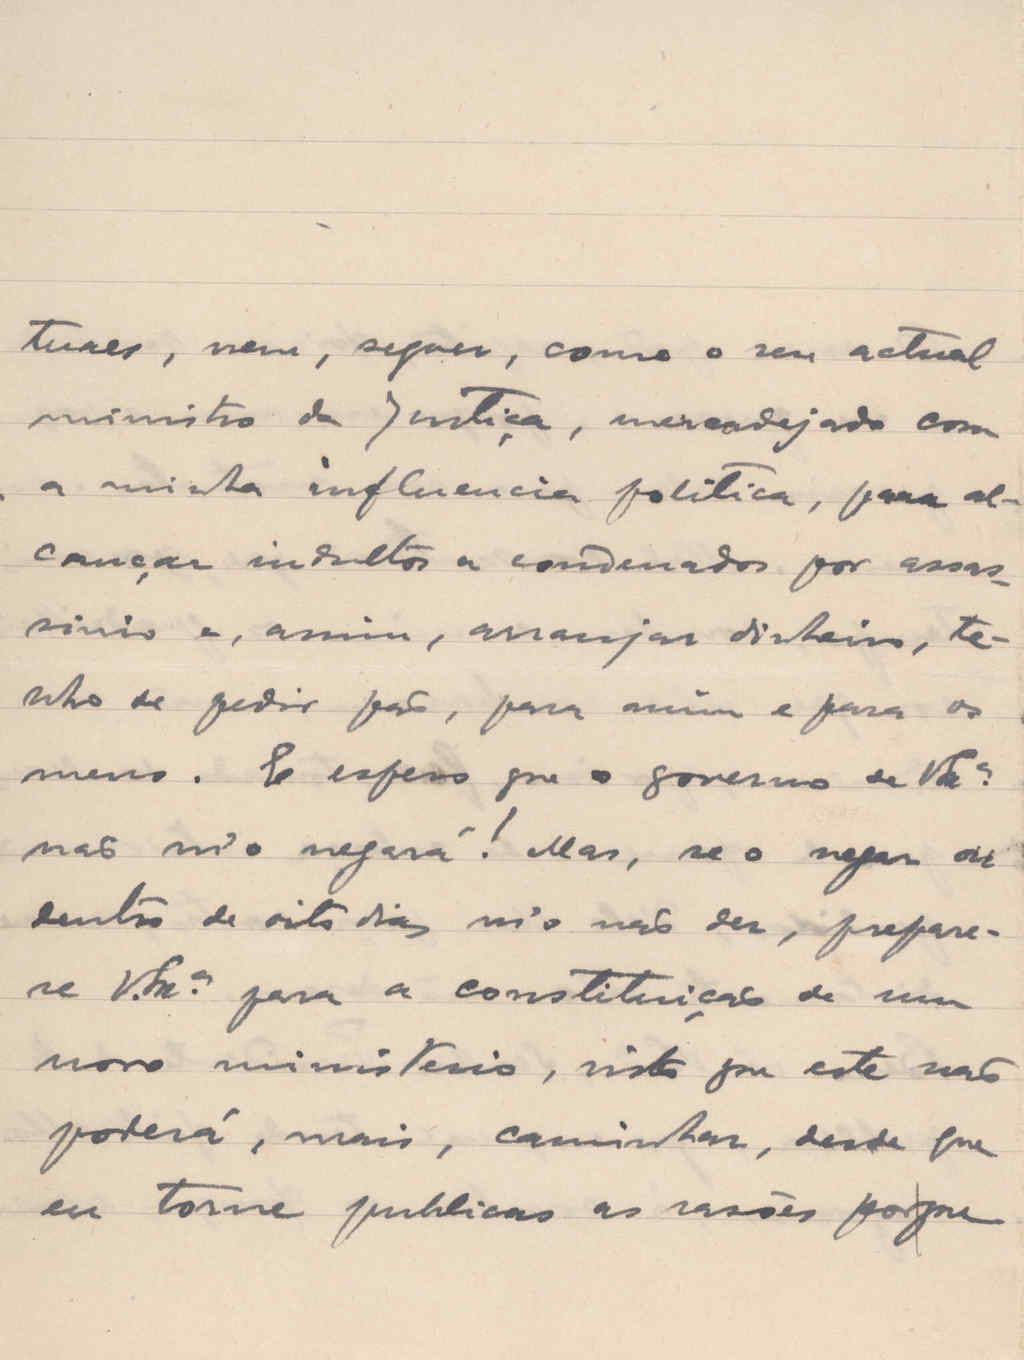 tuaes, nem, sequer, como o seu actual
ministro da Justiça, mercadejado com
a minha influencia politica, para al-
cançar indultos a condenados por assas-
sinio e, assim, arranjar dinheiro, te-
nho de pedir paõ, para mim e para os
meus. E espero que o governo de V.Ex.ª
naõ m'o negará! Mas, se o negar ou
dentro de oito dias m'o naõ der, prepare-
se V.Ex.ª para a constituiçaõ de um
novo ministerio, visto que este naõ
poderá, mais, caminhar, desde que
eu torne publicas as rasões porque